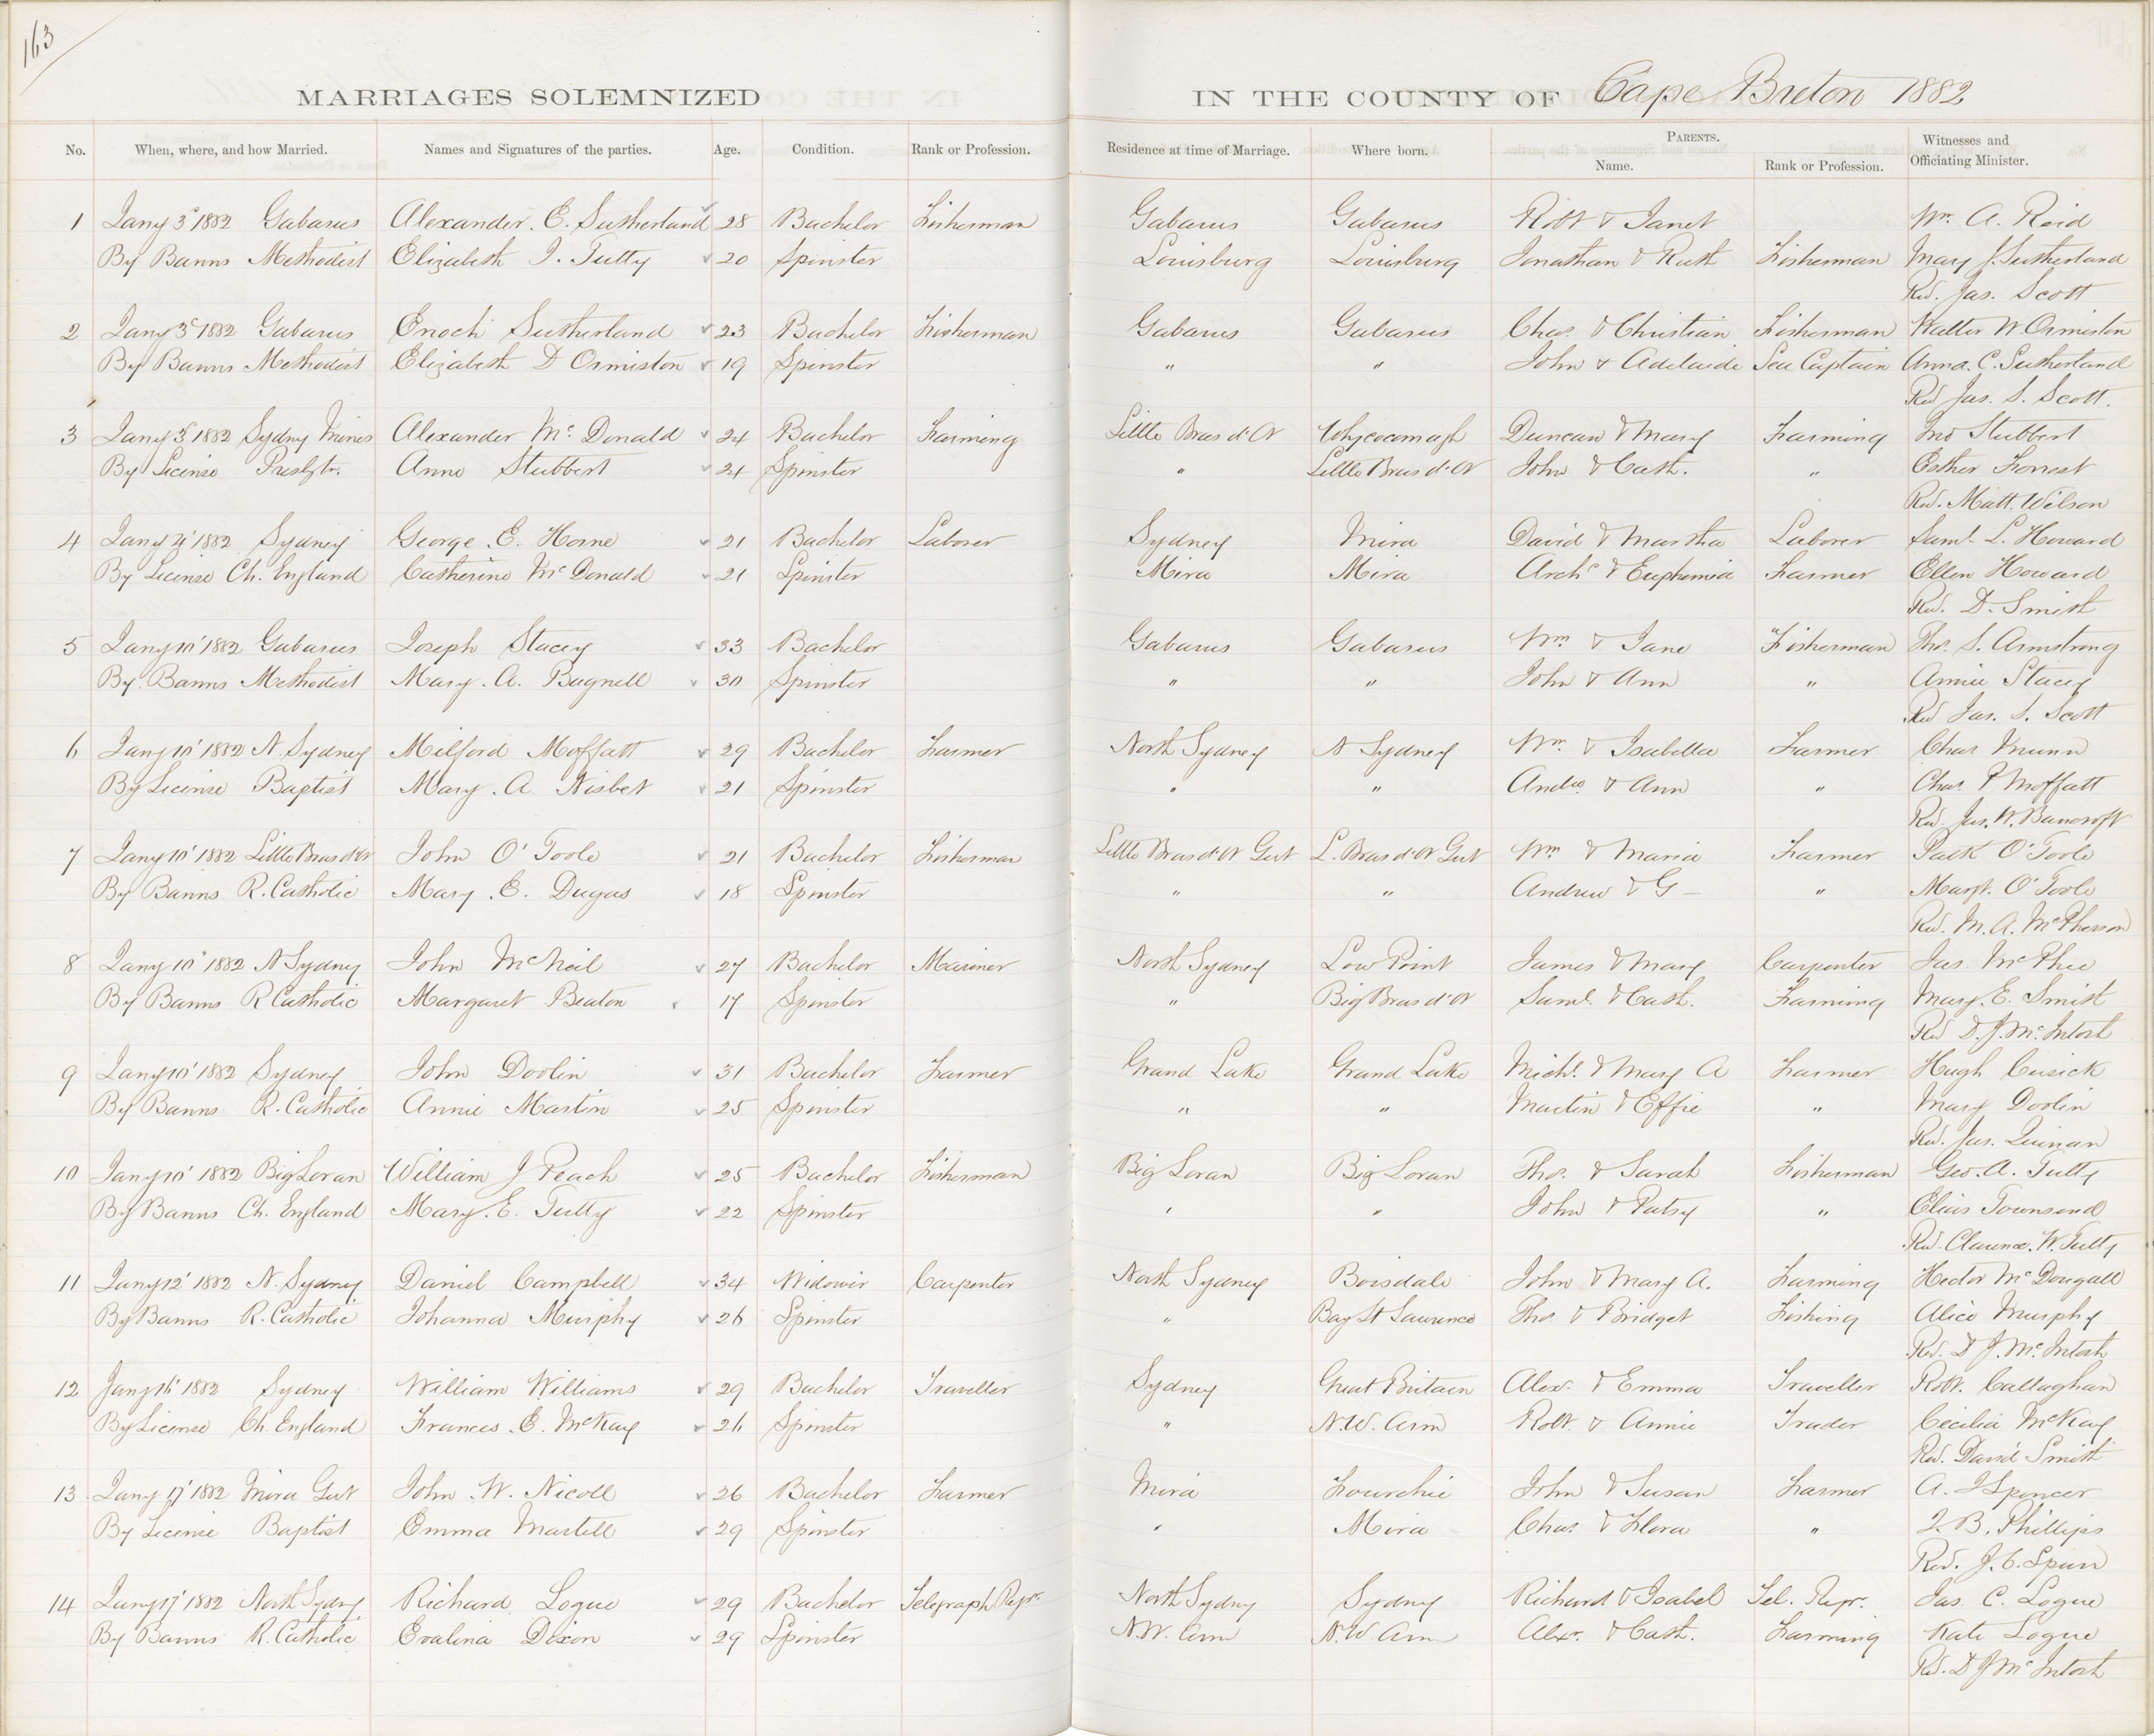 163
MARRIAGES SOLEMNIZED IN THE COUNTY OF Cape Breton 1882
No. When, where, and how Married. Names and Signatures of the parties. Age. Condition. Rank or Profession. Residence at time of Marriage. Where born. PARENTS. Name. Rank or Profession. Witnesses and Officiating Minister.
1 Jany 3' 1882 Gabarus Alexander. E. Sutherland 28 Bachelor Fisherman Gabarus Gabarus Robt & Janet Wm. A. Reid
By Banns Methodist Elizabeth J. Tutty 20 Spinster Louisburg Louisburg Jonathan & Ruth Fisherman Mary J. Sutherland
Rev. Jas. Scott
2 Jany 3' 1882 Gabarus Enoch Sutherland 23 Bachelor Fisherman Gabarus Gabarus Chas. & Christian Fisherman Walter W. Ormiston
By Banns Methodist Elizabeth D Ormiston 19 Spinster " " John & Adelaide Sea Captain Anna. C. Sutherland
Rev Jas. S. Scott.
3 Jany 3' 1882 Sydny Mines Alexander Mc Donald 24 Bachelor Farming Little Bras d'Or Whycocomagh Duncan & Mary Farming Jno Stubbert
By License Presbytr. Anne Stubbert 21 Spinster " Little Bras d'Or John & Cath. " Esther Forrest
Rev. Matt. Wilson
4 Jany 4' 1882 Sydney George. E. Horne 21 Bachelor Laborer Sydney Mira David & Martha Laborer Saml. L. Howard
By License Ch. England Catherine Mc Donald 21 Spinster Mira Mira Archd & Euphemia Farmer Ellen Howard
Rev. D. Smith
5 Jany 10' 1882 Gabarus Joseph Stacey 33 Bachelor Gabarus Gabarus Wm & Jane "Fisherman Thos. S. Armstrong
By Banns Methodist Mary. A. Bagnell 30 Spinster " " John & Ann " Annie Stacey
Rev Jas. S. Scott
6 Jany 10' 1882 N. Sydney Milford Moffatt 29 Bachelor Farmer North Sydney N Sydney Wm. & Isabella Farmer Chas Munn
By License Baptist Mary. A. Nisbet 21 Spinster " " Andw. & Ann " Chas. P Moffatt
Rev. Jas. W. Bancroft
7 Jany 10' 1882 Little Bras d'Or John O'Toole 21 Bachelor Fisherman Little Bras d'Or Gut L. Bras d'Or Gut Wm & Maria Farmer Patk O'Toole
By Banns R. Catholic Mary. E. Dugas 18 Spinster " " Andrew & G — " Margt. O'Toole
Rev. M. A. McPherson
8 Jany 10' 1882 N Sydney John McNeil 27 Bachelor Mariner North Sydney Low Point James & Mary Carpenter Jas. McPhee
By Banns R Catholic Margaret Beaton 17 Spinster " Big Bras d'Or Saml. & Cath. Farming Mary. E. Smith
Rev D. J. Mc Intosh
9 Jany 10' 1882 Sydney John Doolin 31 Bachelor Farmer Grand Lake Grand Lake Michl. & Mary A Farmer Hugh Cusick
By Banns R. Catholic Annie Martin 25 Spinster " " Martin & Effie " Mary Doolin
Rev. Jas. Quinan
10 Jany 10' 1882 Big Loran William J Peach 25 Bachelor Fisherman Big Loran Big Loran Thos. & Sarah Fisherman Geo. A. Tutty
By Banns Ch. England Mary. E. Tutty 22 Spinster " " John & Patsy " Elias Townsend
Rev. Clarence. W. Tutty
11 Jany 12' 1882 N. Sydney Daniel Campbell 34 Widower Carpenter North Sydney Boisdale John & Mary A. Farming Hector McDougall
By Banns R. Catholic Johanna Murphy 26 Spinster " Bay St Lawrence Thos. & Bridget Fishing Alice Murphy
Rev. D J. Mc Intosh
12 Jany 16' 1882 Sydney William Williams 29 Bachelor Traveller Sydney Great Britain Alex. & Emma Traveller Robt. Callaghan
By License Ch. England Frances. E. McKay 26 Spinster " N.W. Arm Robt. & Annie Trader Cecilia McKay
Rev. David Smith
13 Jany 17' 1882 Mira Gut John. W. Nicoll 26 Bachelor Farmer Mira Fourchie John & Susan Farmer A. J Spencer
By License Baptist Emma Martell 29 Spinster " Mira Chas. & Flora " J. B. Phillips
Rev. J. C. Spurr
14 Jany 17' 1882 North Sydny Richard Logue 29 Bachelor Telegraph Repr. North Sydny Sydney Richard & Isabel Tel. Repr. Jas. C. Logue
By Banns R. Catholic Evalina Dixon 29 Spinster N.W. Arm N.W. Arm Alexr. & Cath. Farming Kate Logue
Rev. D J Mc Intosh